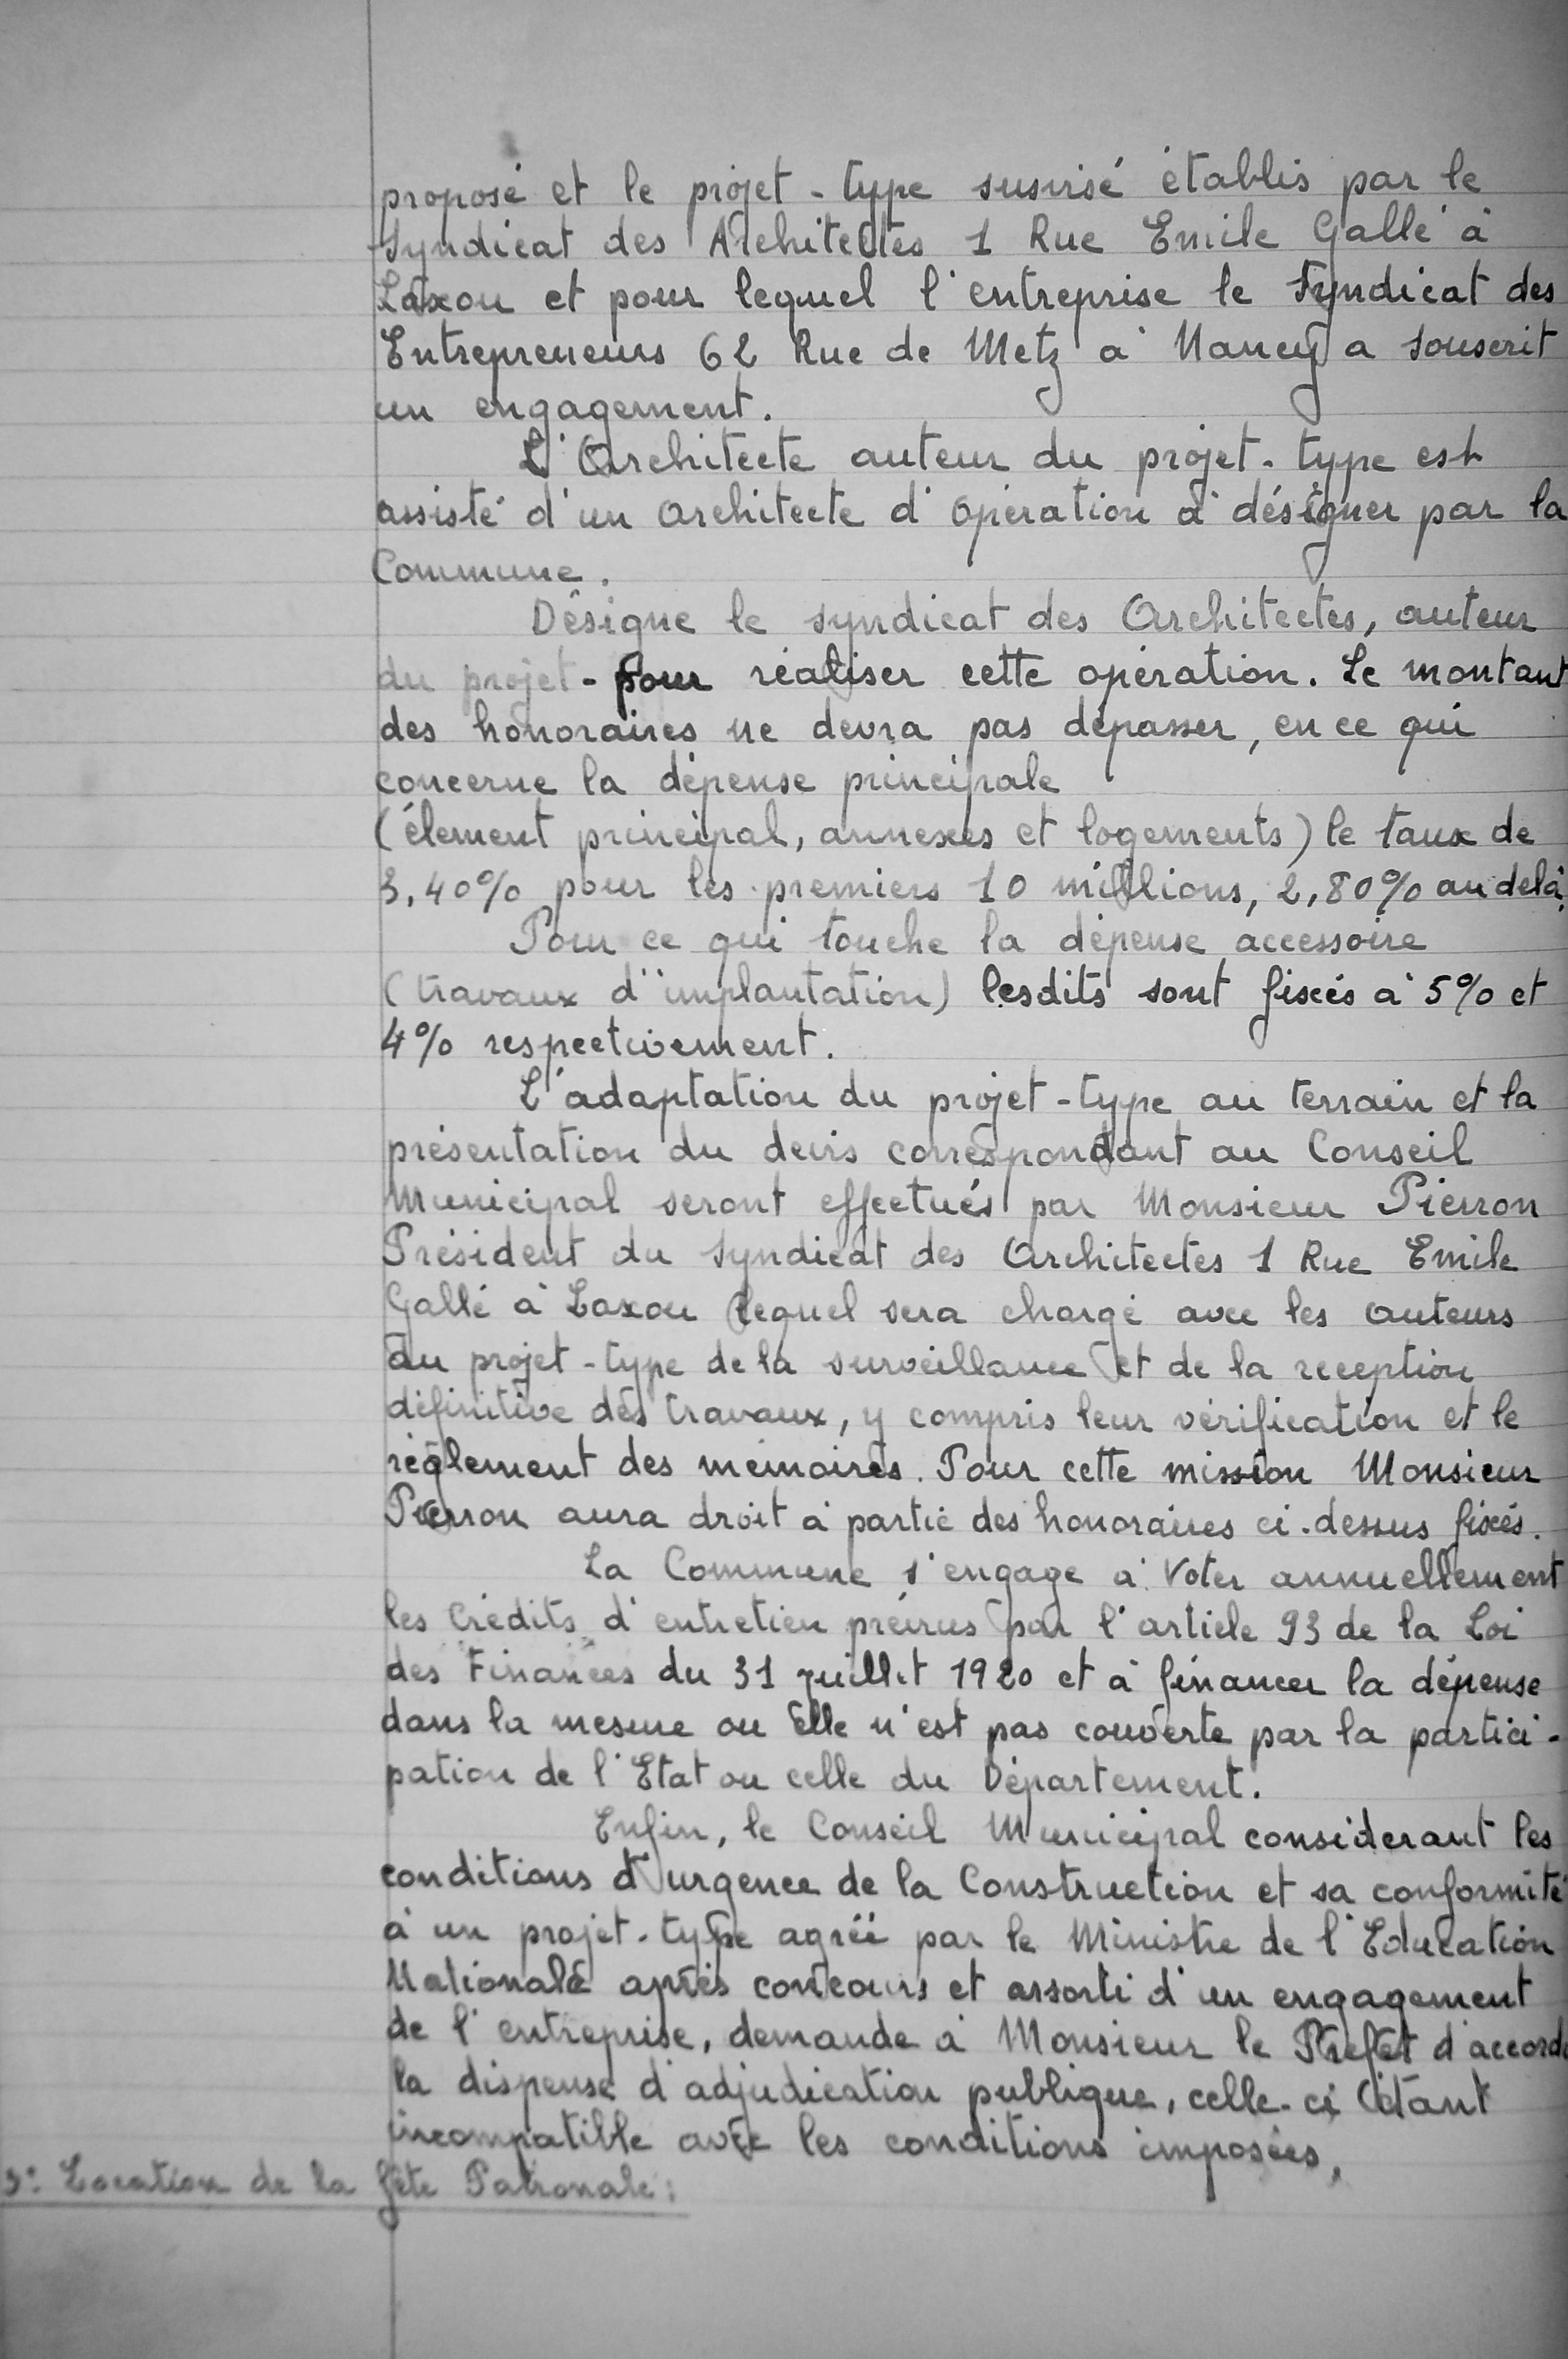 proposé et le projet-type susvisé établis par le
Syndicat des Architectes 1 Rue Emile Gallé à
Laxou et pour lequel l'entreprise le Syndicat des
Entrepreneurs 62 Rue de Metz à Nancy a souscrit
un engagement.
L'Architecte auteur du projet-type est
assisté d'un Architecte d'opération à désigner par la
Commune.
Désigne le syndicat des Architectes, auteur
du projet-pour réaliser cette opération. Le montant
des honoraires ne devra pas dépasser, en ce qui
concerne la dépense principale
(élement principal, annexes et logements) le taux de
3,40% pour les premiers 10 millions, 2,80% au delà.
Pour ce qui touche la dépense accessoire
(travaux d'implantation) lesdits sont fixés à 5% et
4% respectivement.
L'adaptation du projet-type au terrain et la
présentation du devis correspondant au Conseil
Municipal seront effectués par Monsieur Pierron
Président du Syndicat des Architectes 1 Rue Emile
Gallé à Laxou lequel sera chargé avec les auteurs
du projet-type de la surveillance et de la reception
définitive des travaux, y compris leur vérification et le
règlement des mémoires. Pour cette mission Monsieur
Pierron aura droit à partie des honoraires ci-dessus fixés.
La Commune s'engage à Voter annuellement
les Crédits d'entretien prévus par l'article 93 de la Loi
des Finances du 31 juillet 1920 et à financer la dépense
dans la mesure ou elle n'est pas couverte par la partici-
pation de l'Etat ou celle du Département.
Enfin, le Conseil Municipal considerant les
conditions d'urgence de la Construction et sa conformité
à un projet-type agréé par le Ministre de l'Education
Nationale après concours et assorti d'un engagement
de l'entreprise, demande à Monsieur le Préfet d'accord
la dispense d'adjudication publique, celle-ci étant
incompatible avec les conditions imposées,
3º Location de la fête Patronale: